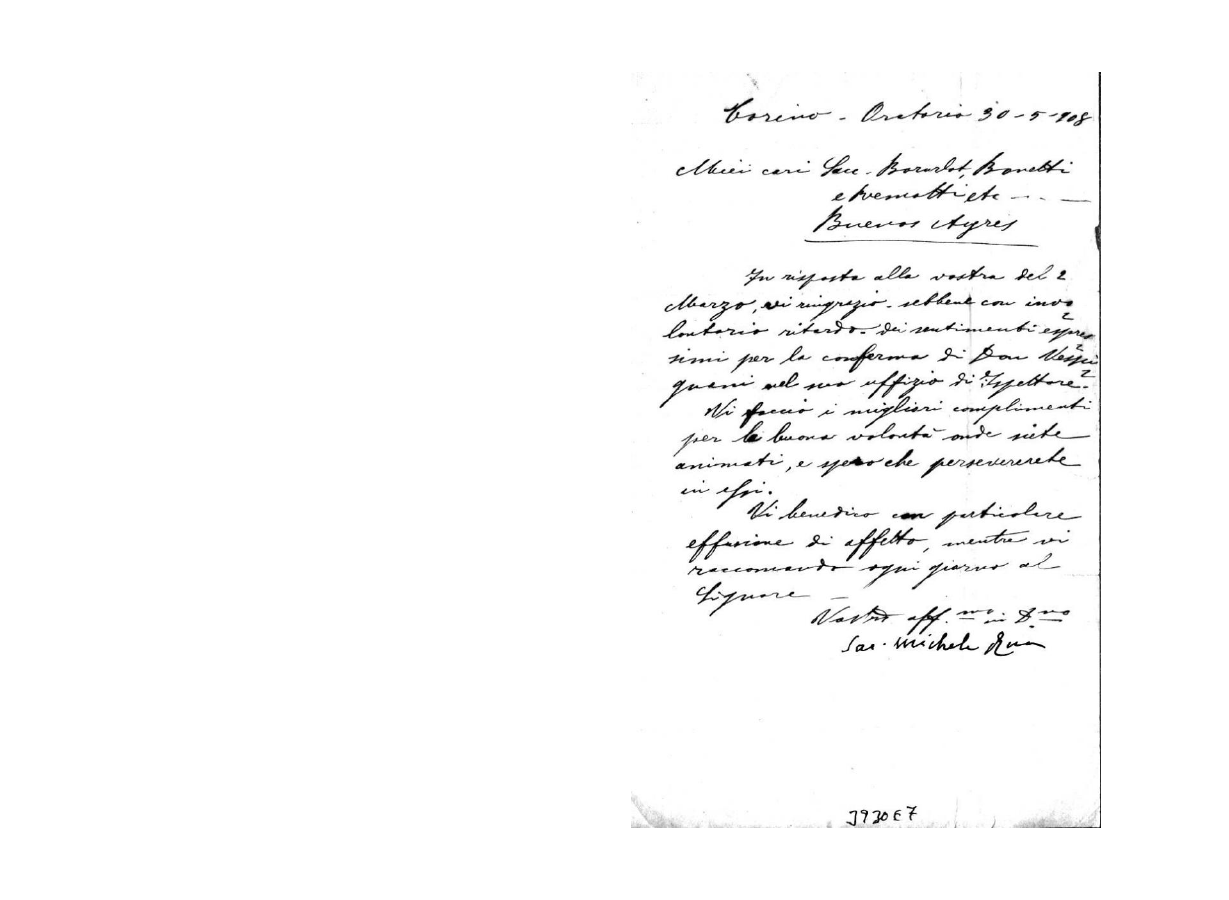 Torino - Oratorio 30-5-908
Miei cari Sac. Borardot, Bonetti
e etc - . . -
Buenos Ayres
In risposta alla vostra del 2
Marzo, vi ringrazio - sebbene con invo
lontario ritardo - dei sentimenti espres
simi per la conferma di Don Vespi
gnani nel suo uffizio di Ispettore.
Vi faccio i migliori complimenti
per la buona volontà onde siete
animati, e spero che persevererete
in essi.
Vi benedico con particolare
effusione di affetto, mentre vi
raccomando ogni giorno al
Signore -
Vostro aff.mo in Dno
Sac. Michele Rua
J930E7